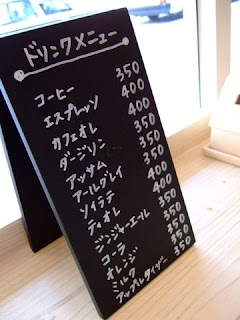 ドリンクメニュー
コーヒー 350
エスプレッソ 400
カフェオレ 400
ダージリン 400
アッサム 350
アールグレイ 350
ソイラテ 400
ティオレ 400
ジンジャーエール 350
コーラ 350
オレンジ 350
ミルク 350
アップルタイザー 350